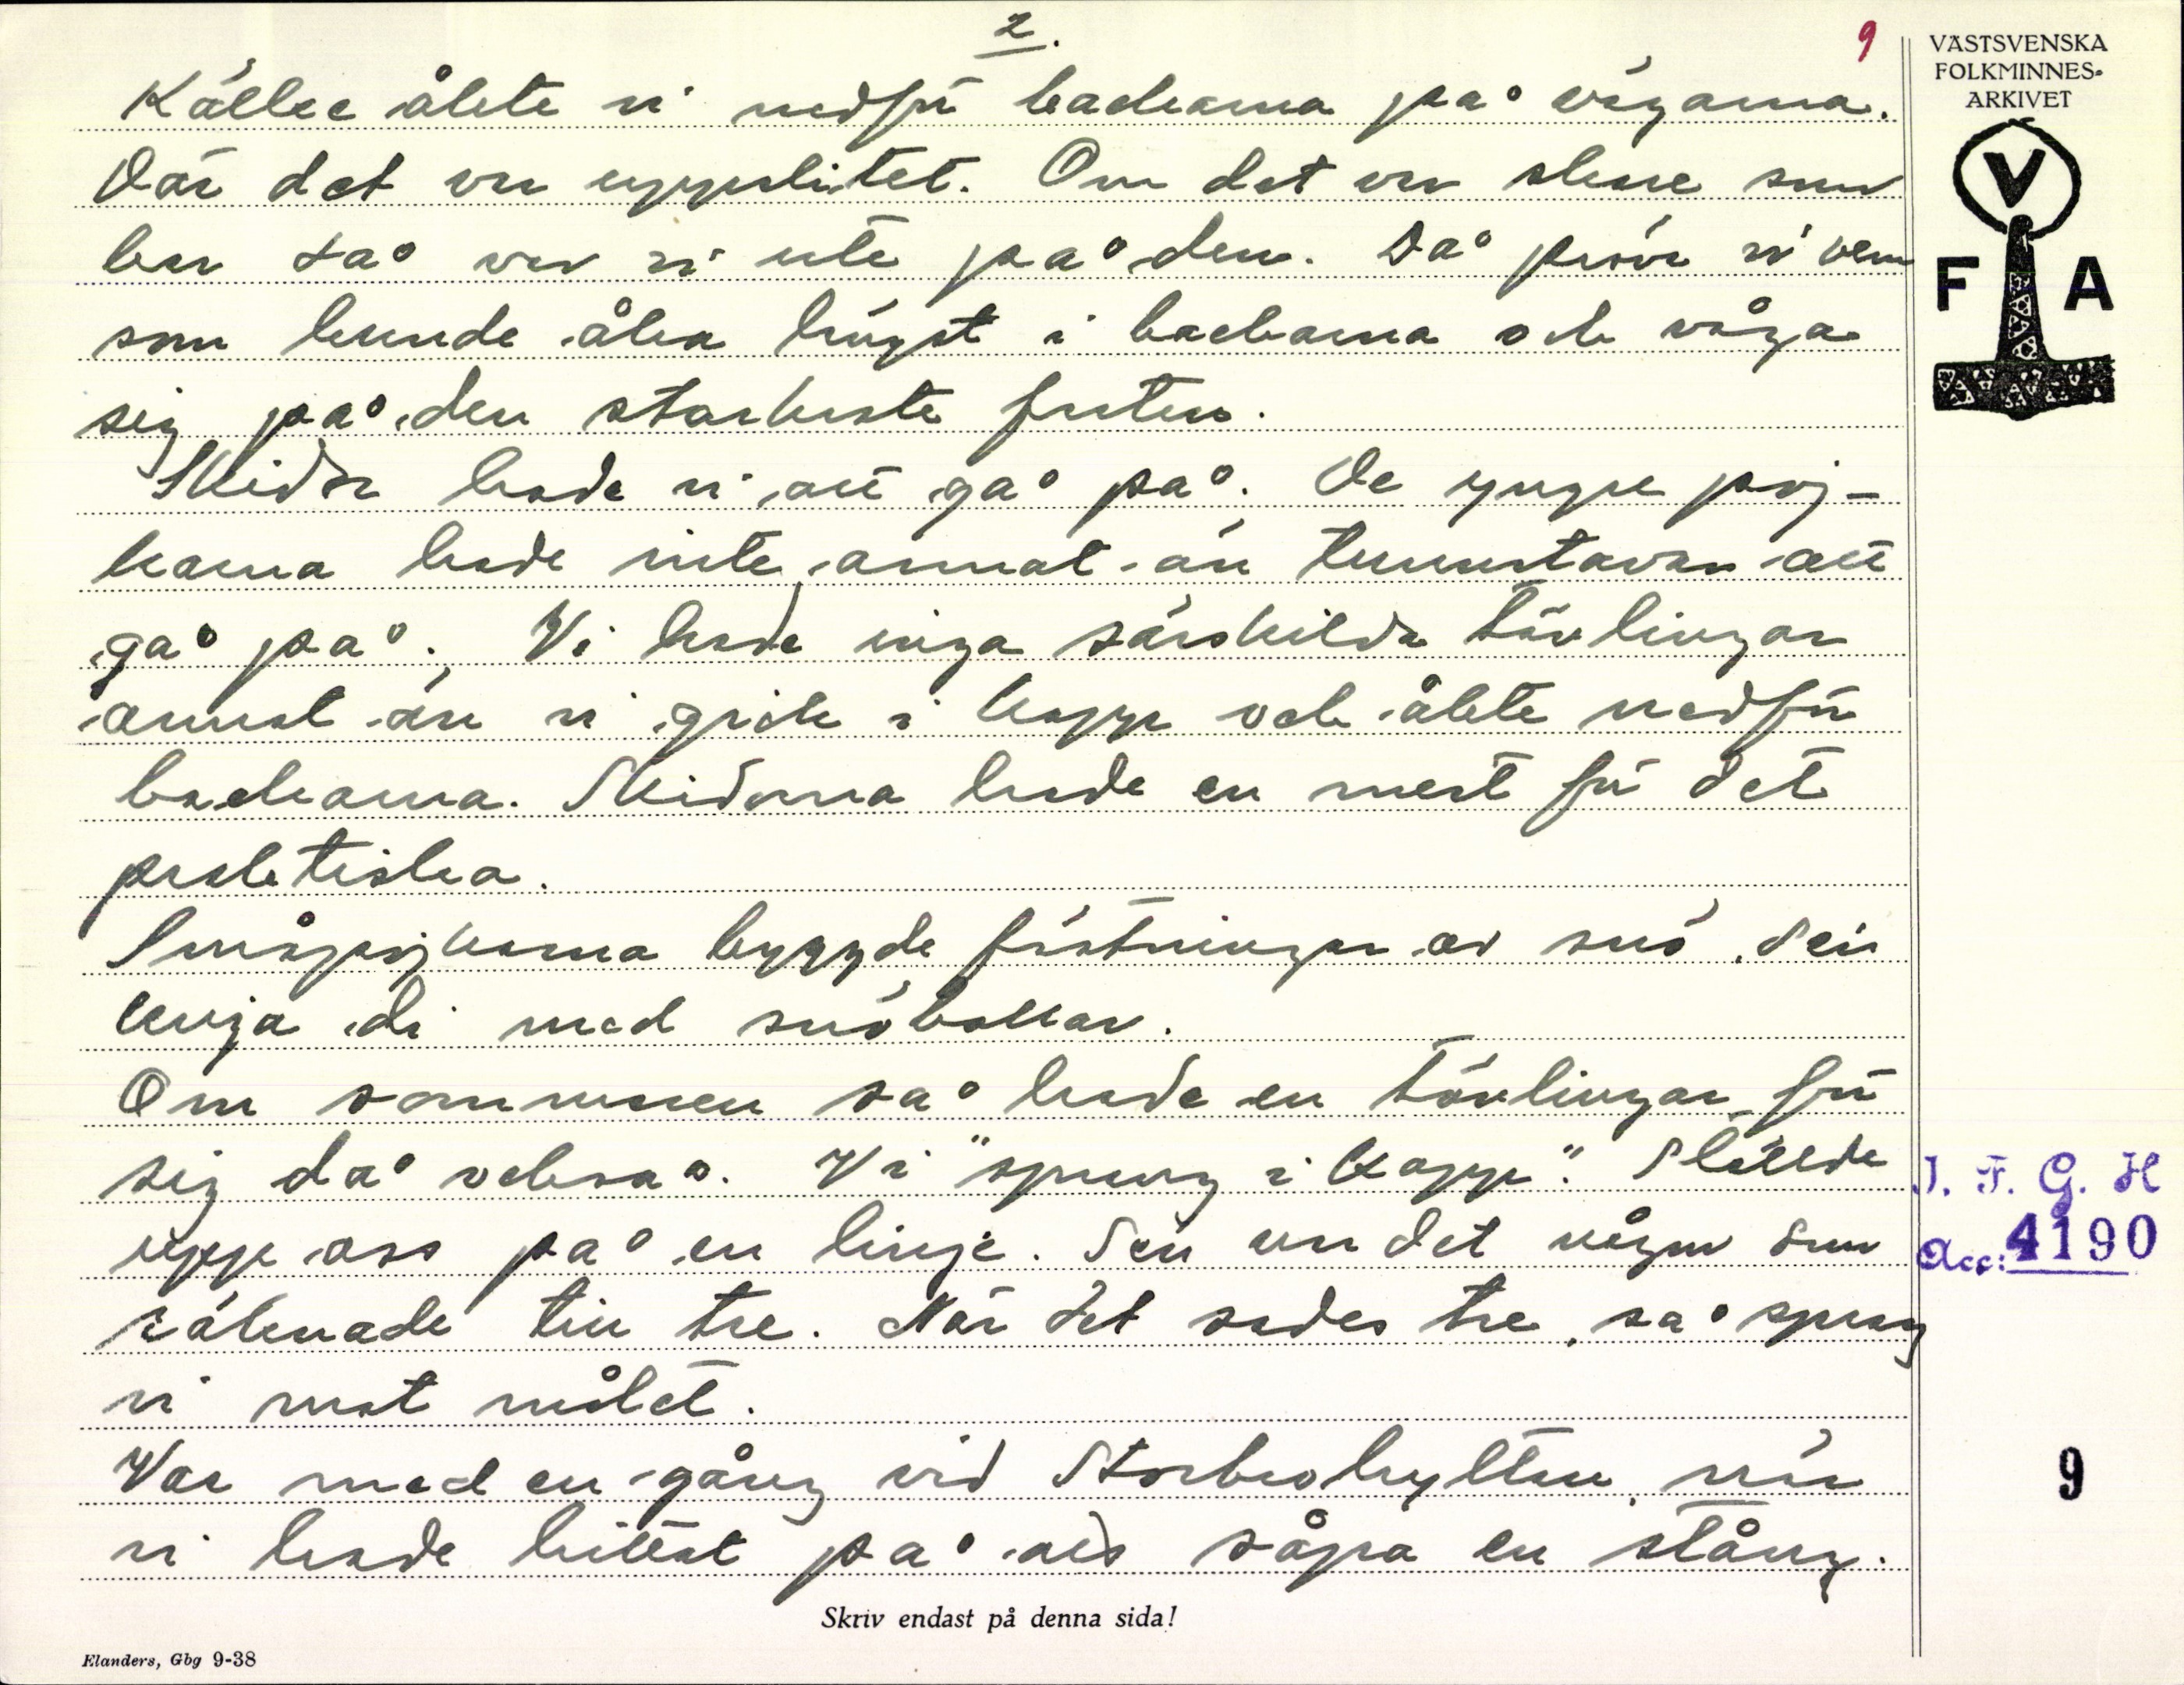 2.
9
VÄSTSVENSKA
FOLKMINNES-
ARKIVET
V
F A
Källee åkte vi nedför backarna på vägarna.
Där det var uppslitet. Om det var skare som
bar så var vi ute på den. Då pröva vi vem
som kunde åka högst i backarna och våga
sig på den starkaste farten.
Skidor hade vi att gå på. De yngre poj-
karna hade inte annat än tunnstavar att
gå på. Vi hade inga särskilda tävlingar
annat än vi gick i kapp och åkte nedför
backarna. Skidorna hade en mest för det
praktiska.
Småpojkarna byggde fästningar av snö, sen
kriga di med snöbollar.
Om sommaren så hade en tävlingar för
sig då också. Vi "sprang i kapp". Ställde
upp oss på en linje. Sen var det någon som
räknade till tre. När det sades tre, så sprang
vi mot målet.
Var med en gång vid Storbrohyltan, när
vi hade hittat på att såpa en stång.
I. F. G. H
Acc: 4190
9
Skriv endast på denna sida!
Elanders, Gbg 9-38